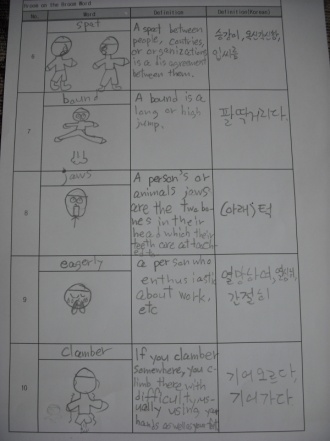 Break on the Dream Word
No. Word Definition Definition(Korean)
6
spat
A spat between
people, countries,
or organizations
is a disagreement
between them.
입씨름
7
bound
A bound is a
long or high
jump.
펄떡거리다.
8
jaws
A person's or
animals jaws
are the two bo-
nes in their
head which their
teeth are attach
ed to
(아래)턱
9
eagerly
a person who
enthusiastic
about work,
etc
열망하여,
간절히
10
clamber
If you clamber
somewhere, you c-
limb there with
difficulty, us-
ually using your
hands as well as your feet
기어오르다,
기어가다